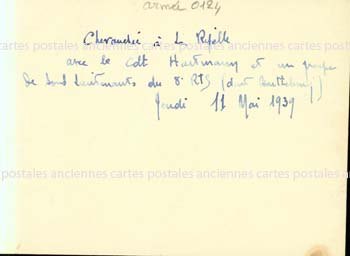 armée 0124
Chevauchée à La Ripelle
avec le Cdt Hartmann et un groupe
de Sous Lieutenants du 8e RTS (dont Barthelemy)
Jeudi 11 Mai 1939
postales anciennes cartes postales anciennes cartes postales
postales anciennes cartes postales anciennes cartes postales